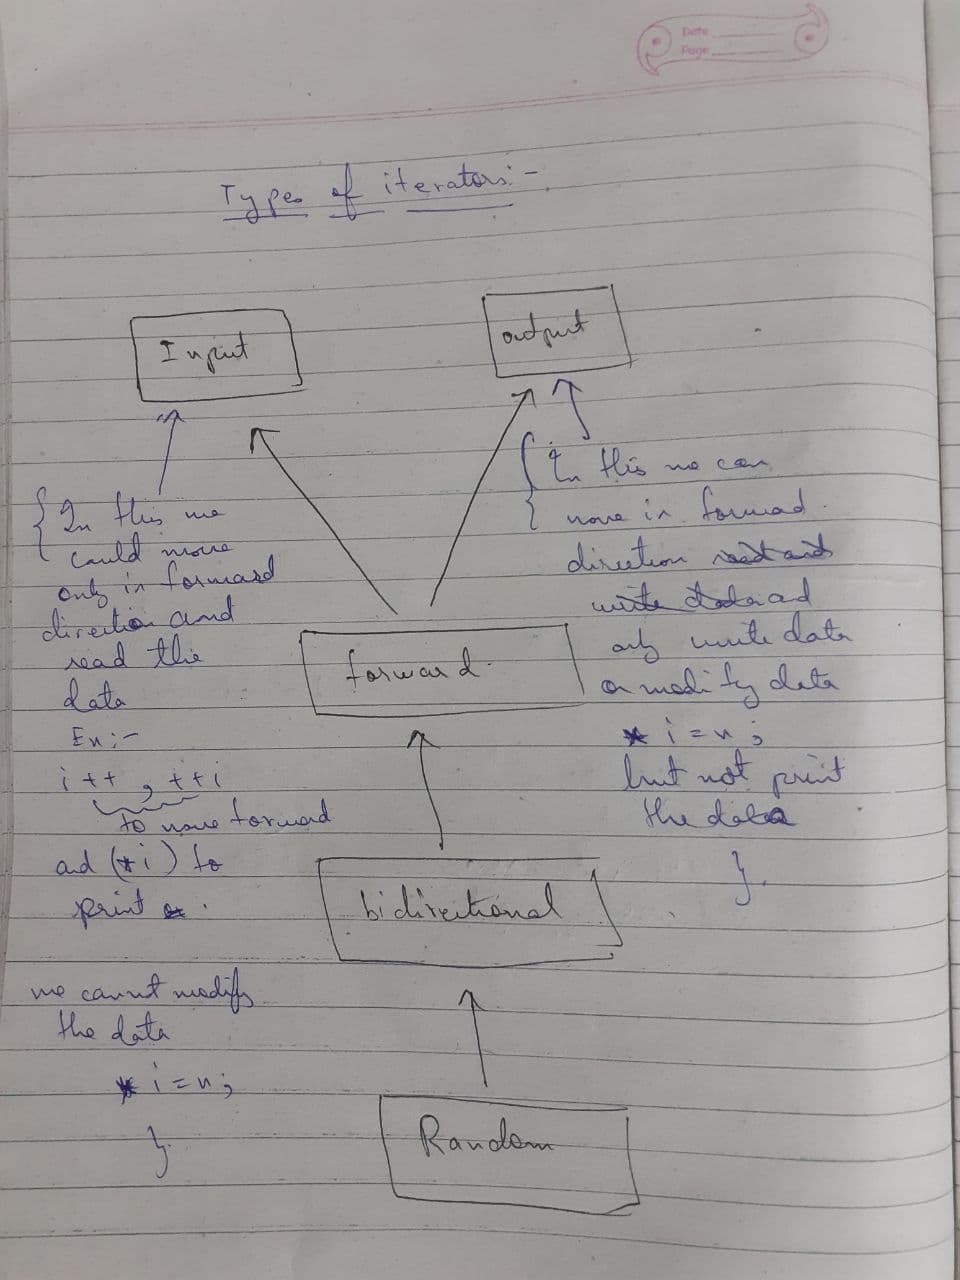 Date
Page
Types of iterators:-
Input
output
{ In this we
could move
only in forward
direction and
read the
data
Ex:-
i++, ++i
to move forward
ad (*i) to
print
we cannot modify
the data
*i=n;
}
{ In this we can
move in forward
direction read and
write data ad
only write data
or modify data
*i=n;
but not print
the data
}.
forward
bidirectional
Random